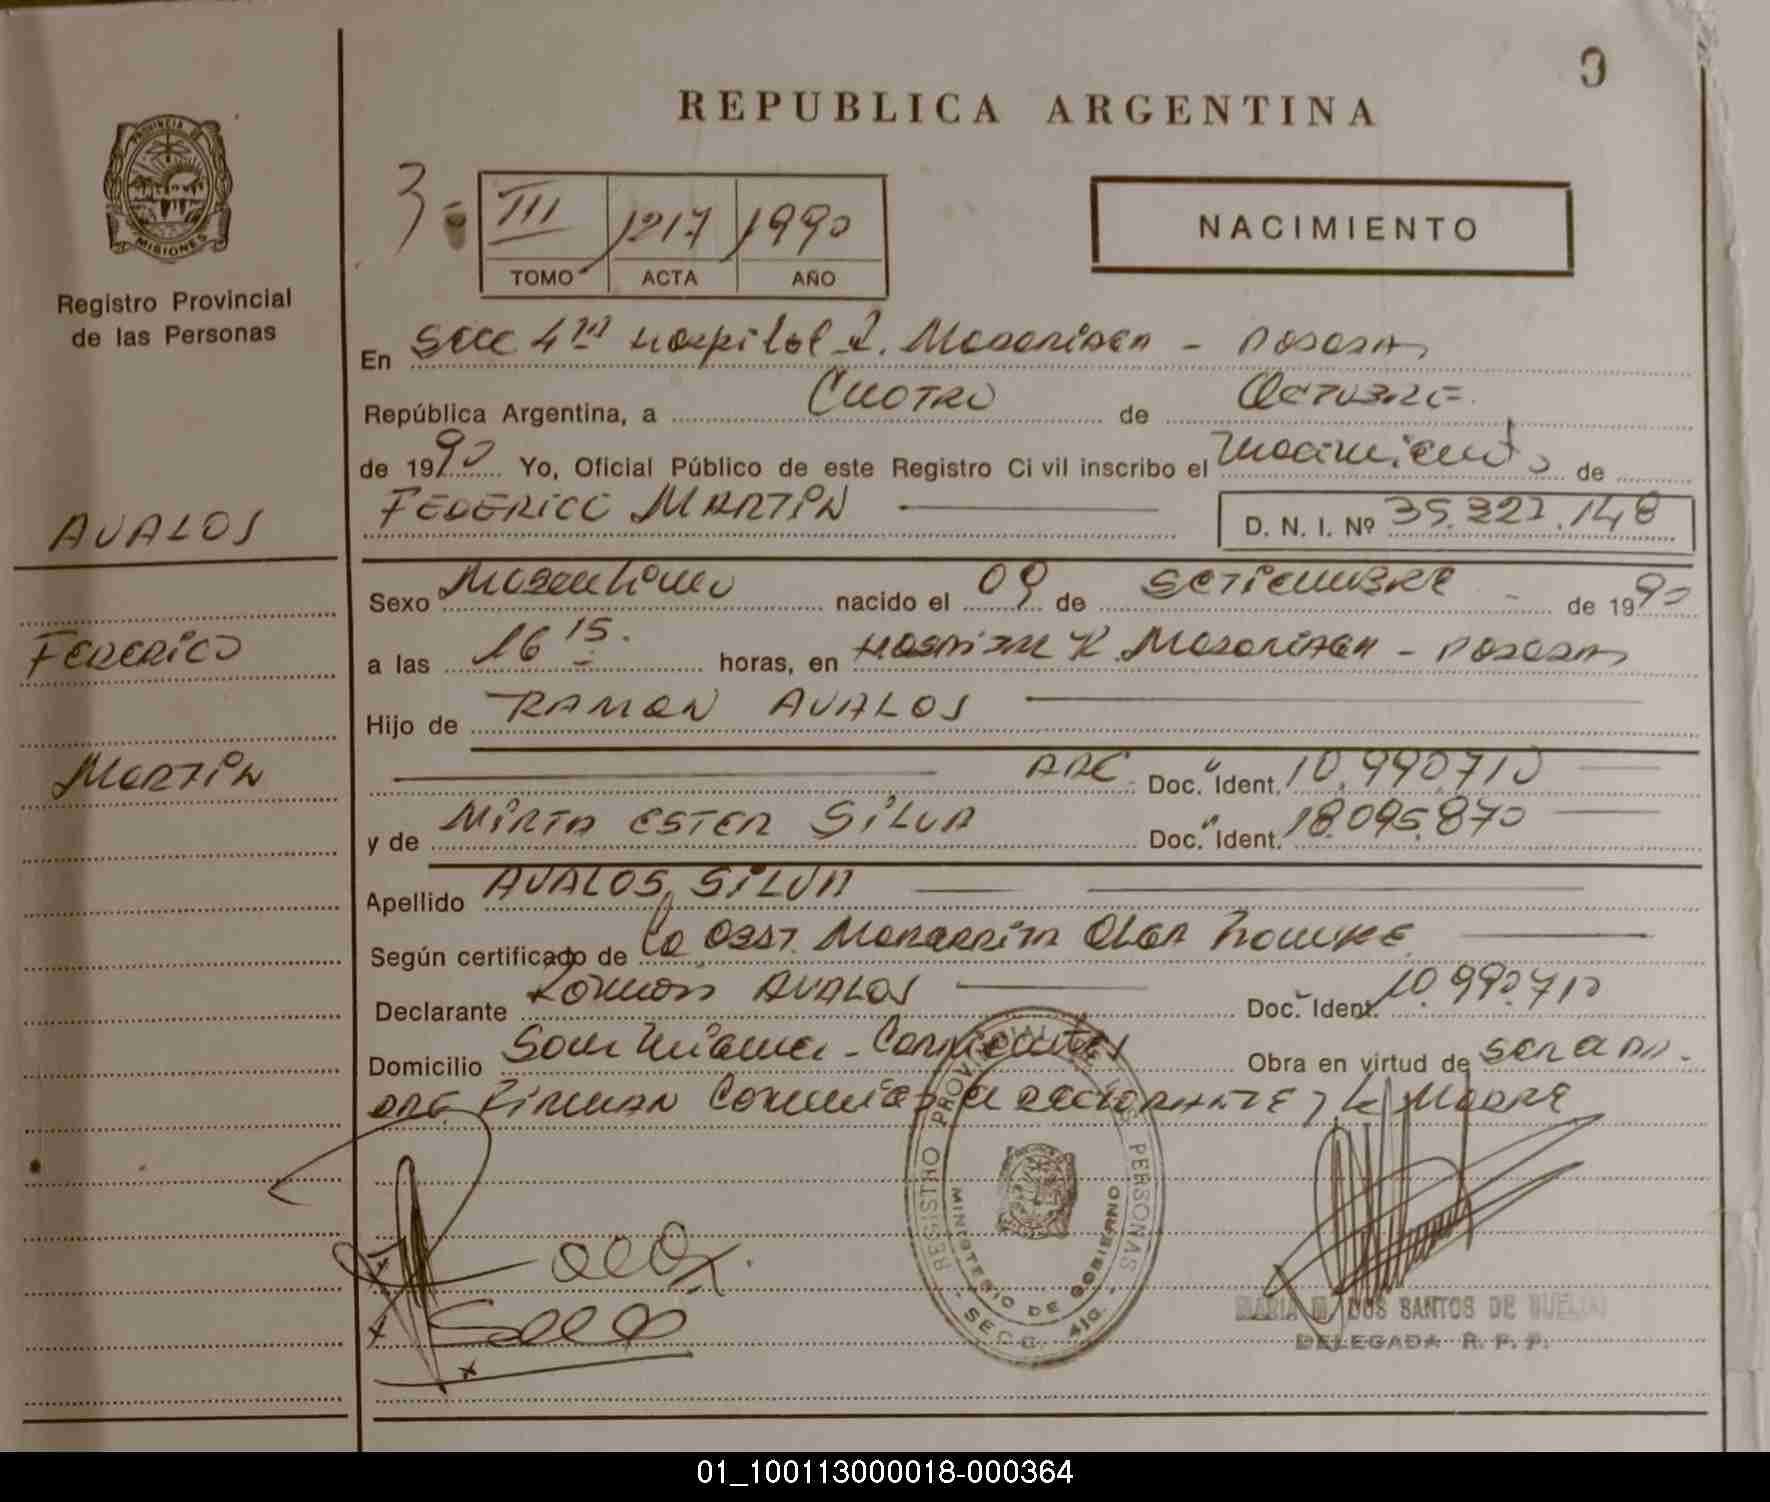 REPUBLICA ARGENTINA
PROVINCIA DE MISIONES
Registro Provincial
de las Personas
3-
III 1217 1990
TOMO ACTA AÑO
NACIMIENTO
En Secc 4ta Hospital R. Madariaga - Posadas
República Argentina, a Cuatro de Octubre
de 1990 Yo, Oficial Público de este Registro Civil inscribo el nacimiento de
AVALOS
FEDERICO MARTIN D. N. I. Nº 35.327.148
Sexo Masculino nacido el 09 de Setiembre de 1990
FEDERICO
a las 16 15. horas, en Hospital R. Madariaga - Posadas
Hijo de RAMON AVALOS
MARTIN
ARG. Doc. Ident. 10.990.710
y de MIRTA ESTER SILVA Doc. Ident. 18.095.870
Apellido AVALOS, SILVA
Según certificado de la Obst.
Declarante Ramón AVALOS Doc. Ident. 10.990.710
Domicilio Corrientes Obra en virtud de ser
Firman el declarante y la Madre
REGISTRO PROVINCIAL DE LAS PERSONAS
MINISTERIO DE GOBIERNO
SECC. 4ta.
MARIA DOS SANTOS DE
DELEGADA R. P. P.
01_100113000018-000364